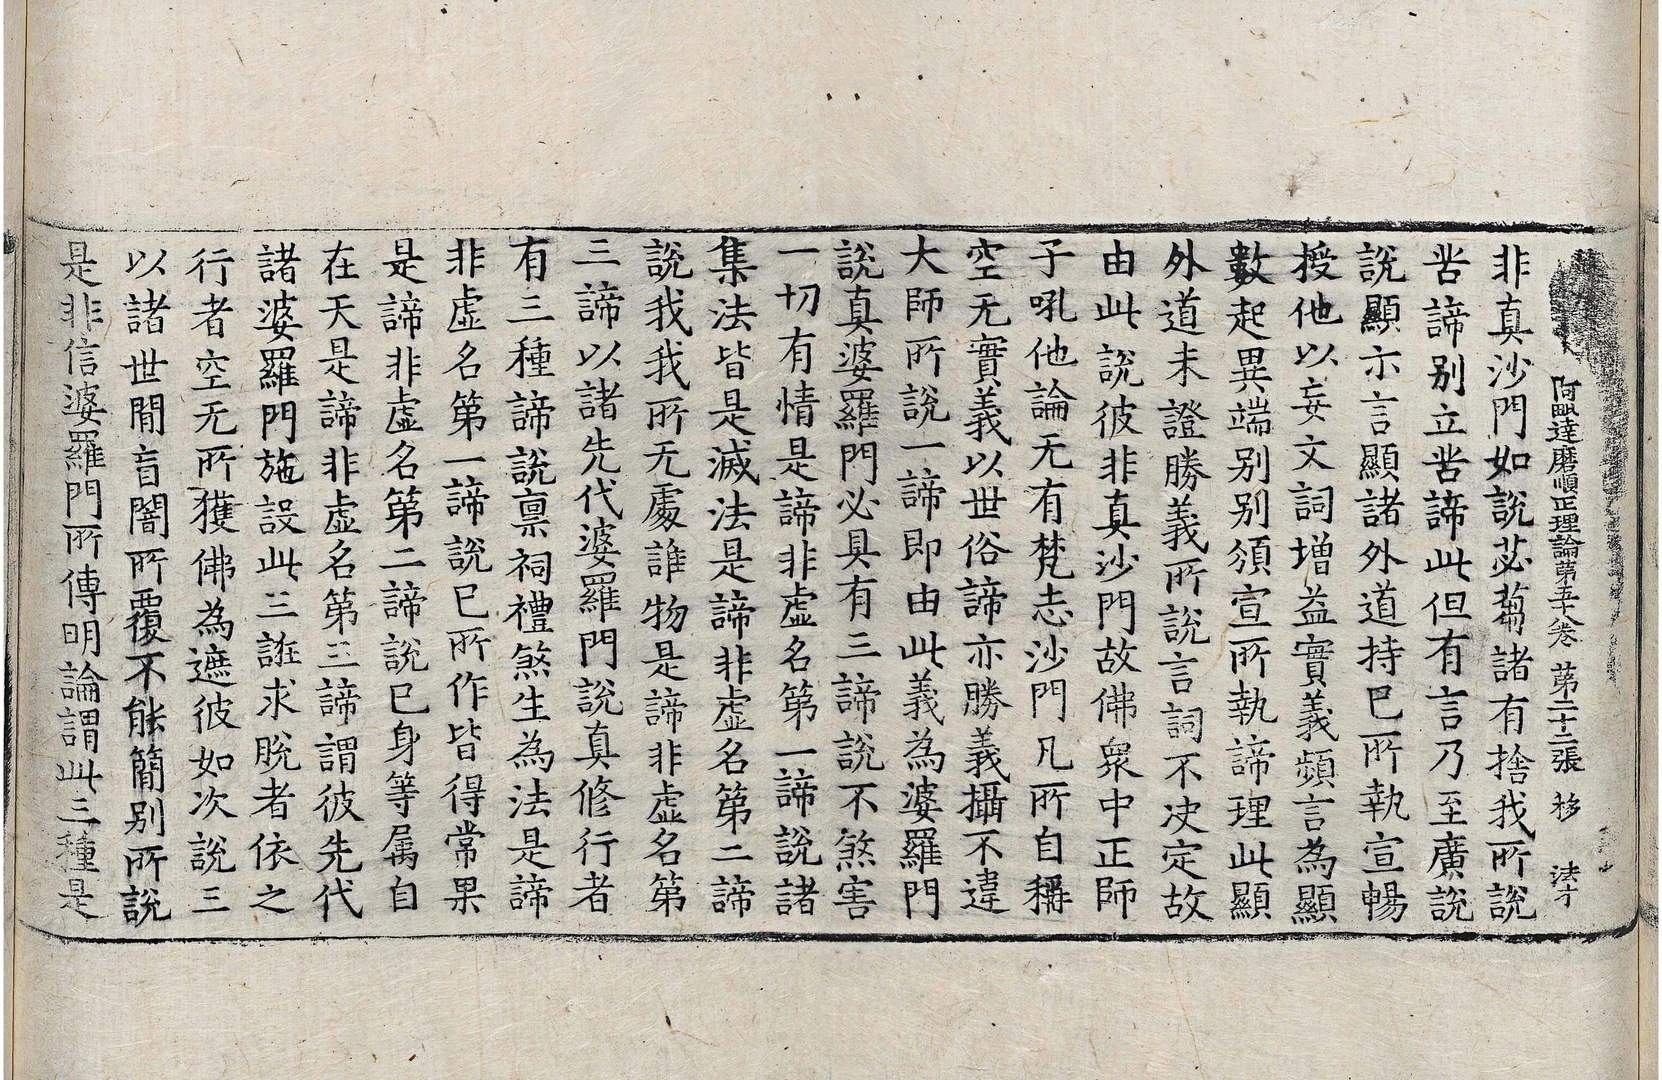 阿毗達磨順正理論第五十八卷 第二十二張 移 法才
非真沙門如說苾蒭諸有捨我所說
苦諦別立苦諦此但有言乃至廣說
說顯示言顯諸外道持已所執宣暢
授他以妄文詞增益實義頻言為顯
數起異端別別領宣所執諦理此顯
外道未證勝義所說言詞不决定故
由此說彼非真沙門故佛衆中正師
子吼他論无有梵志沙門凡所自稱
空无實義以世俗諦亦勝義攝不違
大師所說一諦即由此義為婆羅門
說真婆羅門必具有三諦說不煞害
一切有情是諦非虛名第一諦說諸
集法皆是滅法是諦非虛名第二諦
說我我所无處誰物是諦非虛名第
三諦以諸先代婆羅門說真修行者
有三種諦說禀祠禮煞生為法是諦
非虛名第一諦說已所作皆得常果
是諦非虛名第二諦說已身等属自
在天是諦非虛名第三諦謂彼先代
諸婆羅門施設此三誑求脫者依之
行者空无所獲佛為遮彼如次說三
以諸世間盲闇所覆不能簡別所說
是非信婆羅門所傳明論謂此三種是